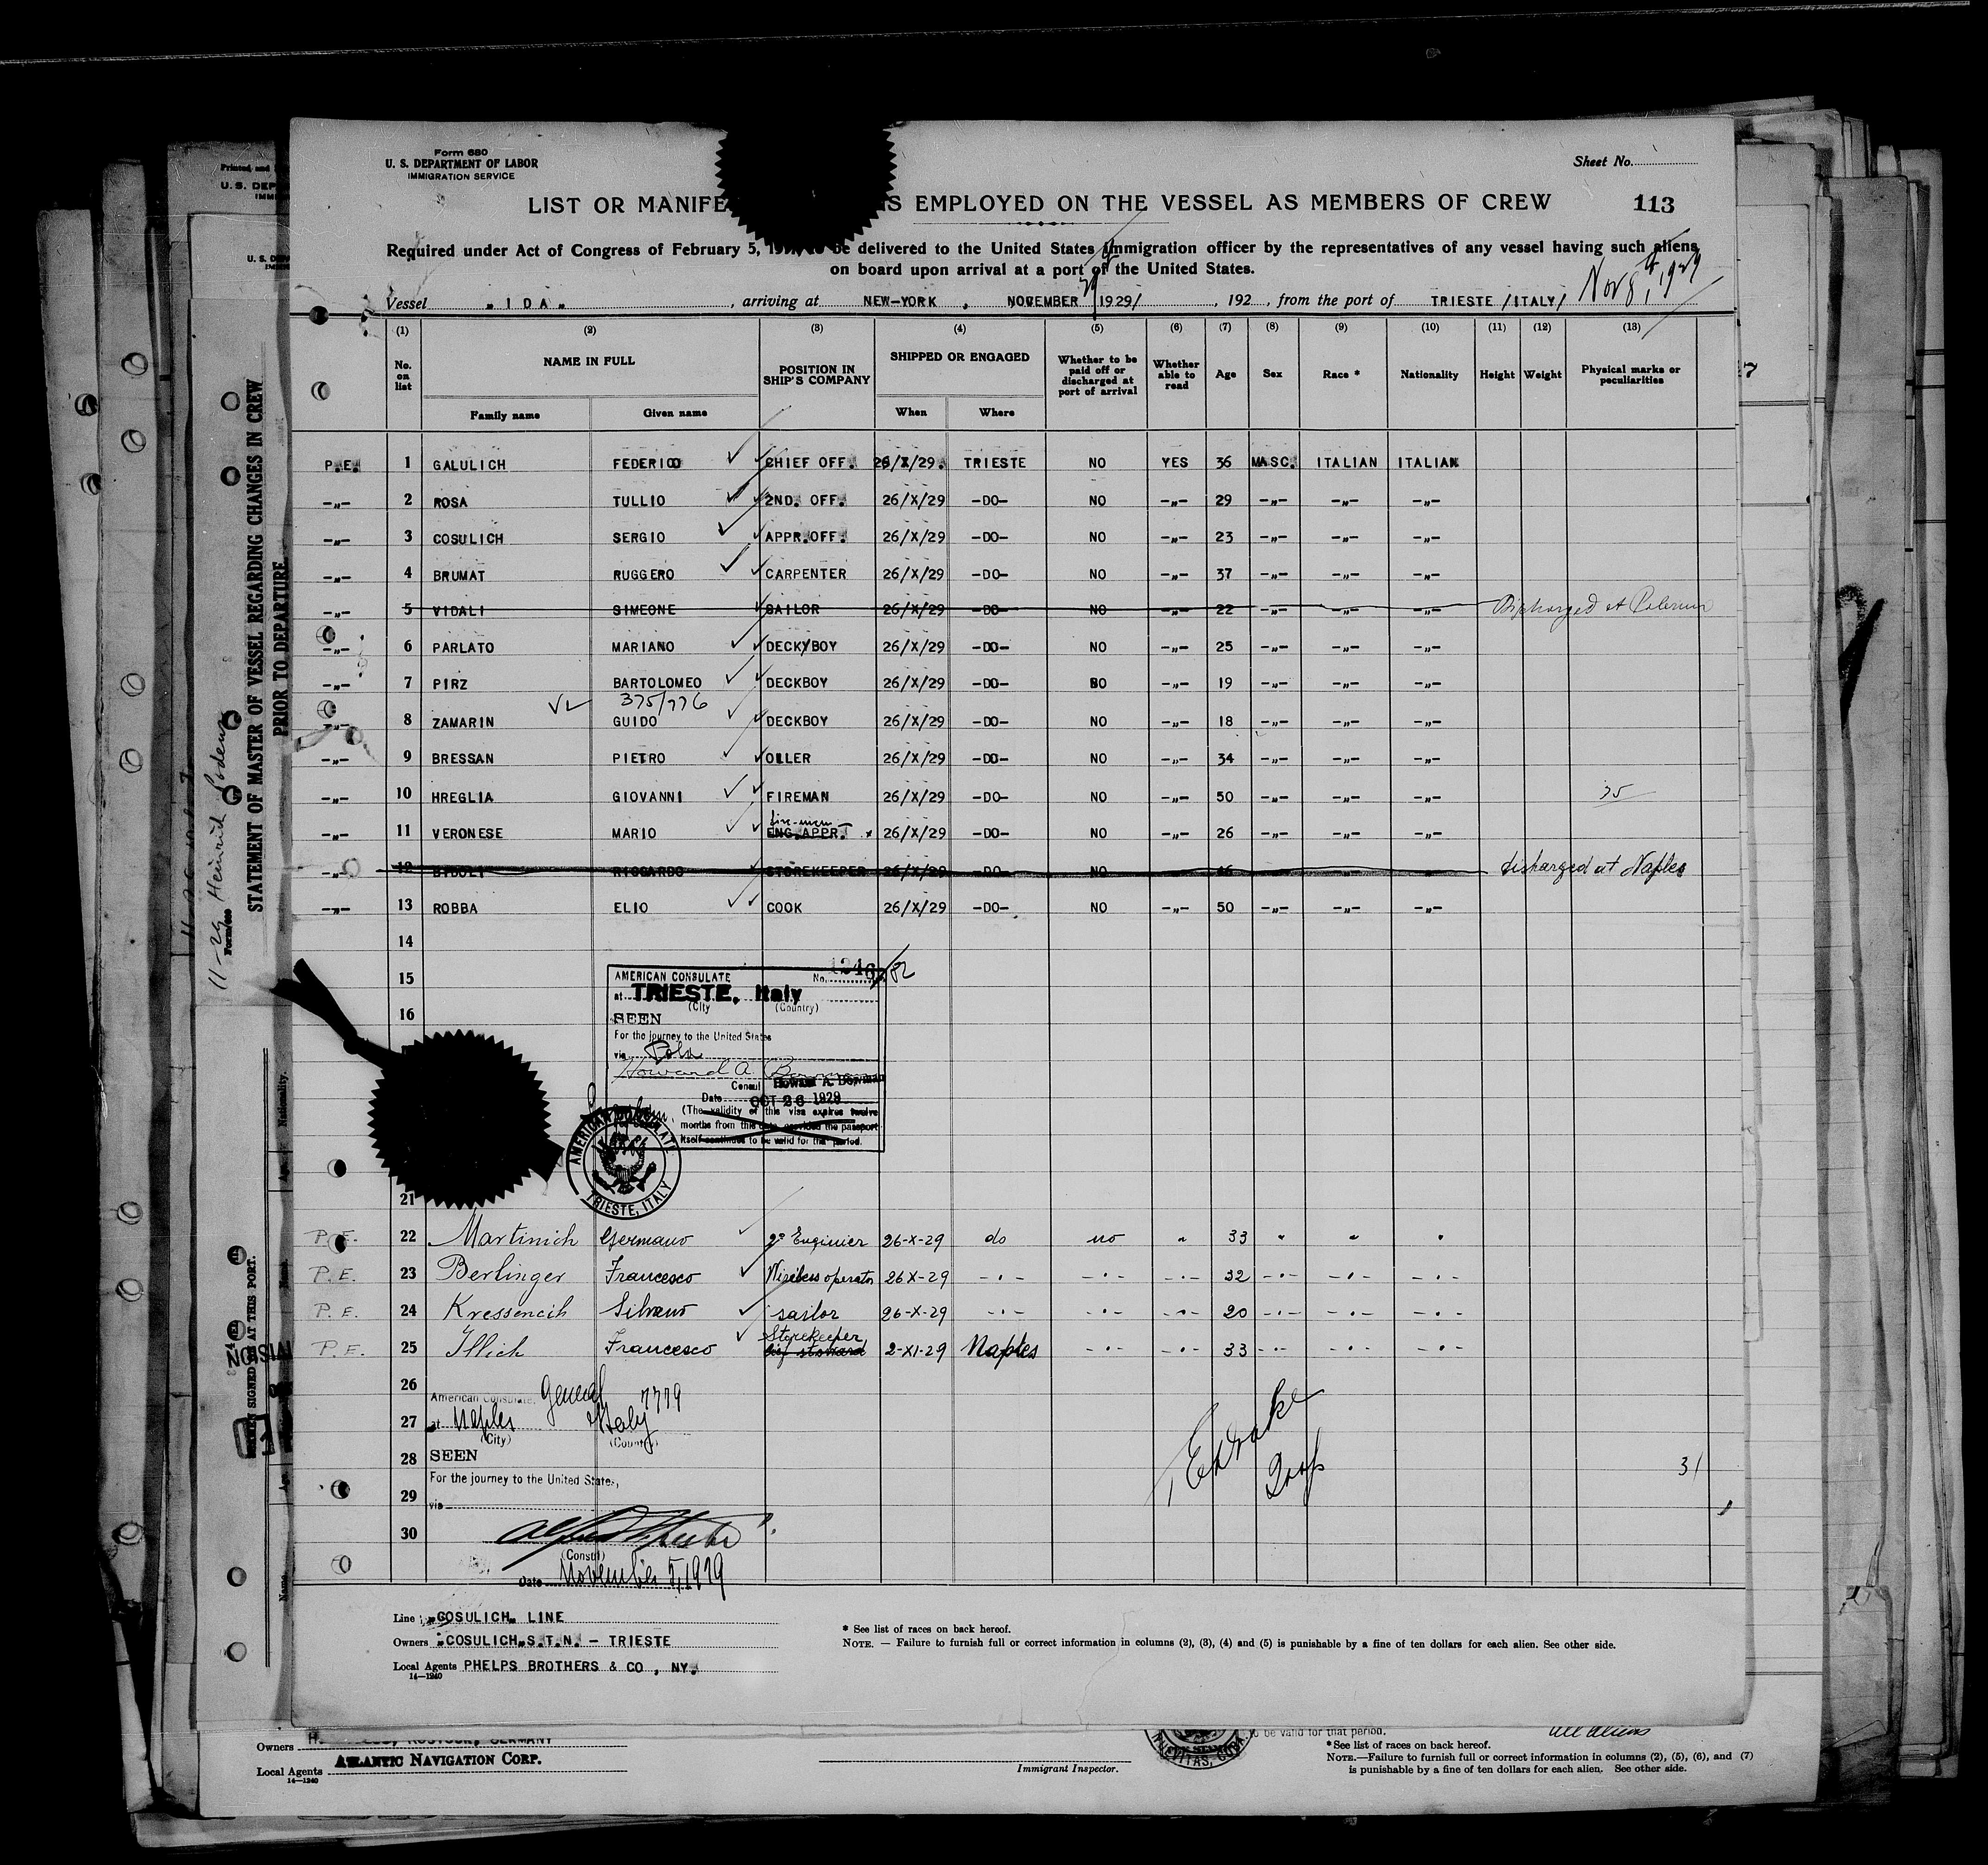 Form 680
U. S. DEPARTMENT OF LABOR
IMMIGRATION SERVICE
Sheet No.
LIST OR MANIFE S EMPLOYED ON THE VESSEL AS MEMBERS OF CREW 113
Required under Act of Congress of February 5, be delivered to the United States Immigration officer by the representatives of any vessel having such aliens
on board upon arrival at a port of the United States.
Vessel „IDA„ , arriving at NEW-YORK , NOVEMBER 1929/ , 192 , from the port of TRIESTE /ITALY/ Nov 8, 1929
(1) (2) (3) (4) (5) (6) (7) (8) (9) (10) (11) (12) (13)
No. on list NAME IN FULL POSITION IN SHIP'S COMPANY SHIPPED OR ENGAGED Whether to be paid off or discharged at port of arrival Whether able to read Age Sex Race * Nationality Height Weight Physical marks or peculiarities
Family name Given name When Where
P.E. 1 GALULICH FEDERICO CHIEF OFF. 26/X/29. TRIESTE NO YES 36 MASC. ITALIAN ITALIAN
-„- 2 ROSA TULLIO 2ND. OFF. 26/X/29 -DO- NO -„- 29 -„- -„- -„-
-„- 3 COSULICH SERGIO APPR.OFF. 26/X/29 -DO- NO -„- 23 -„- -„- -„-
-„- 4 BRUMAT RUGGERO CARPENTER 26/X/29 -DO- NO -„- 37 -„- -„- -„-
-„- 5 VIDALI SIMEONE SAILOR 26/X/29 -DO- NO -„- 22 -„- -„- -„- Discharged at Palermo
-„- 6 PARLATO MARIANO DECKYBOY 26/X/29 -DO- NO -„- 25 -„- -„- -„-
-„- 7 PIRZ BARTOLOMEO DECKBOY 26/X/29 -DO- NO -„- 19 -„- -„- -„-
375/776
-„- 8 ZAMARIN GUIDO DECKBOY 26/X/29 -DO- NO -„- 18 -„- -„- -„-
-„- 9 BRESSAN PIETRO OLLER 26/X/29 -DO- NO -„- 34 -„- -„- -„-
-„- 10 HREGLIA GIOVANNI FIREMAN 26/X/29 -DO- NO -„- 50 -„- -„- -„- 35
-„- 11 VERONESE MARIO ENG.APPR. 26/X/29 -DO- NO -„- 26 -„- -„- -„-
-„- 12 BIDOLI RICCARDO STOREKEEPER 26/X/29 -DO- NO discharged at Naples
-„- 13 ROBBA ELIO COOK 26/X/29 -DO- NO -„- 50 -„- -„- -„-
14
15
16
AMERICAN CONSULATE No. 1246
at TRIESTE, Italy
(City (Country)
SEEN
For the journey to the United States
via
Howard A. Bowman
Consul Howard A. Bowman
Date OCT 26 1929
(The validity of this visa expires twelve
months from this date provided the passport
itself continues to be valid for that period.
AMERICAN CONSULATE
TRIESTE, ITALY
21
P.E. 22 Martinich Germano 2º Enginier 26-X-29 do no " 33 " " "
P.E. 23 Berlinger Francesco Wireless operator 26 X-29 -"- -"- -"- 32 -"- -"- -"-
P.E. 24 Kressencih Silvano sailor 26-X-29 -"- -"- -"- 20 -"- -"- -"-
P.E. 25 Illich Francesco Storekeeper 2-XI-29 Naples -"- -"- 33 -"- -"- -"-
26
27
28
29
30
American Consulate General 7779
at Naples Italy
(City) (Country)
SEEN
For the journey to the United States,
via
(Consul)
Date November 5, 1929
31
Line „COSULICH„ LINE
Owners „COSULICH„S.T.N. - TRIESTE
Local Agents PHELPS BROTHERS & CO , NY.
14—1240
* See list of races on back hereof.
NOTE. — Failure to furnish full or correct information in columns (2), (3), (4) and (5) is punishable by a fine of ten dollars for each alien. See other side.
STATEMENT OF MASTER OF VESSEL REGARDING CHANGES IN CREW
PRIOR TO DEPARTURE
Owners ROSTOCK, GERMANY
Local Agents ATLANTIC NAVIGATION CORP.
14—1240
Immigrant Inspector.
to be valid for that period.
all aliens
*See list of races on back hereof.
NOTE.—Failure to furnish full or correct information in columns (2), (5), (6), and (7)
is punishable by a fine of ten dollars for each alien. See other side.